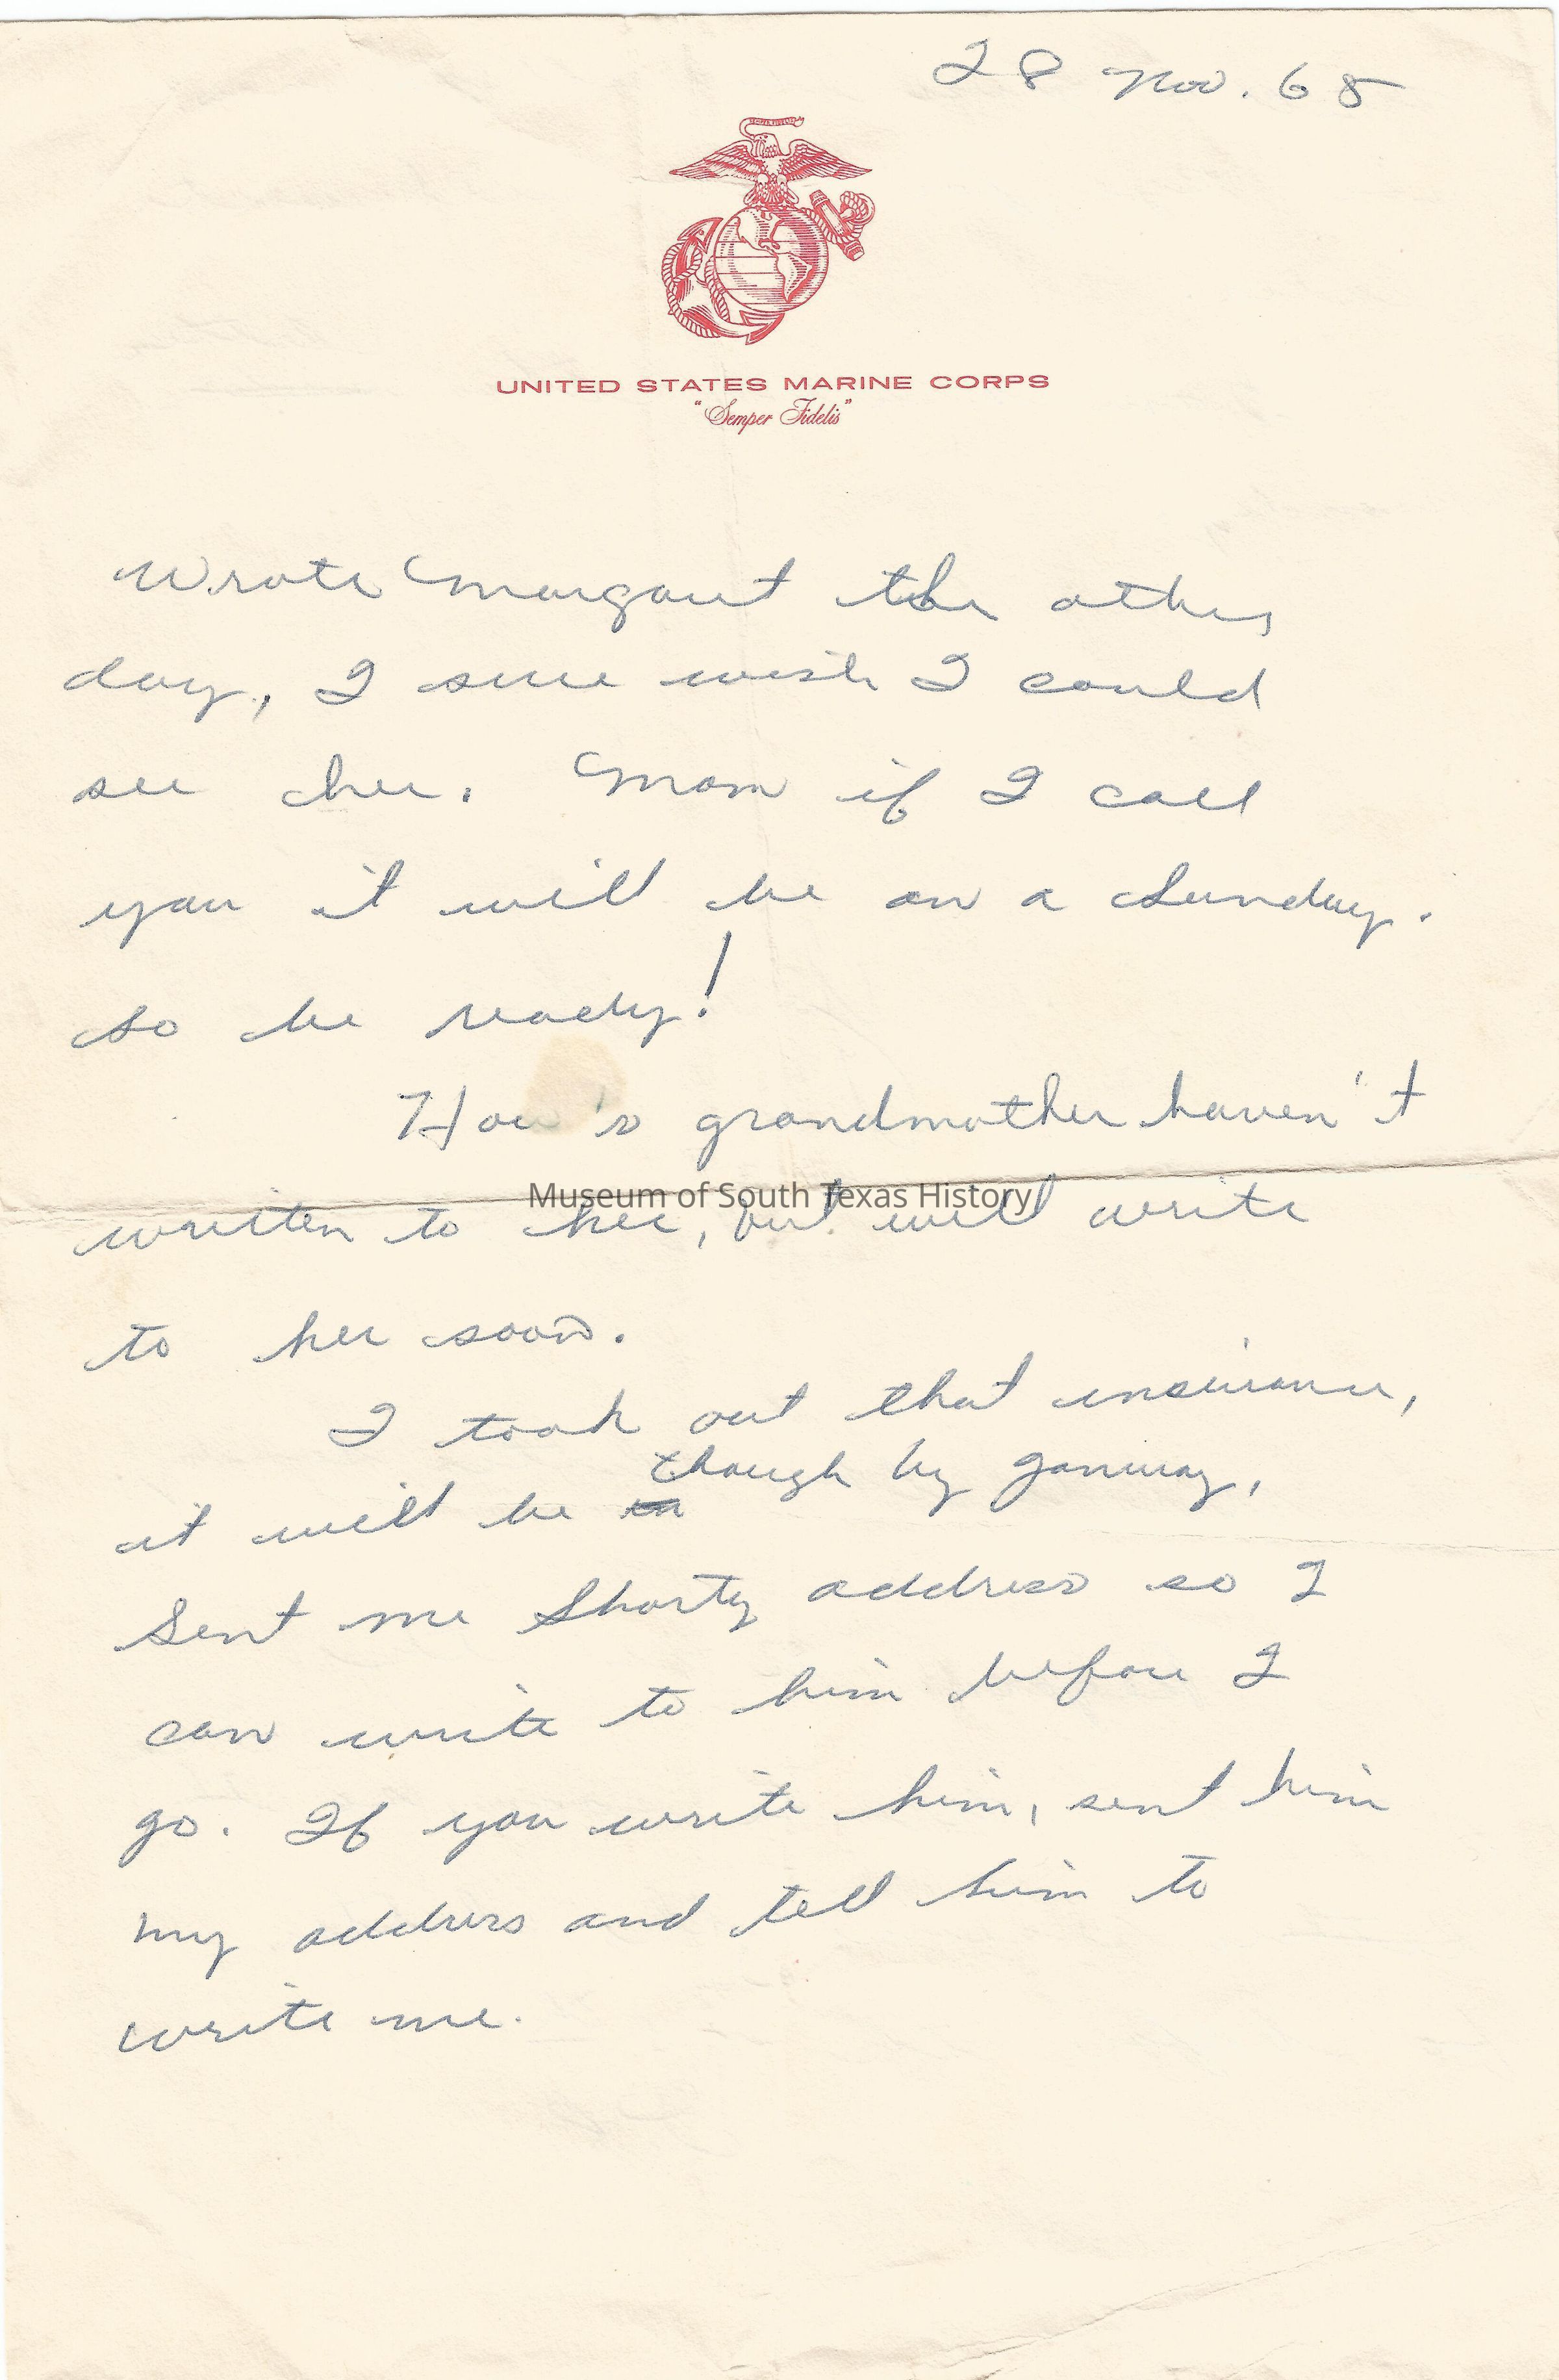 28 Nov. 65
UNITED STATES MARINE CORPS
"Semper Fidelis"
Wrote Margaret the other
day, I sure wish I could
see her. Mom if I call
you it will be on a Sunday.
so be ready!
How's grandmother haven't
Museum of South Texas History
written to her, but will write
to her soon.
I took out that insurance,
it will be though by January,
Sent me Shorty address so I
can write to him before I
go. If you write him, sent him
my address and tell him to
write me.